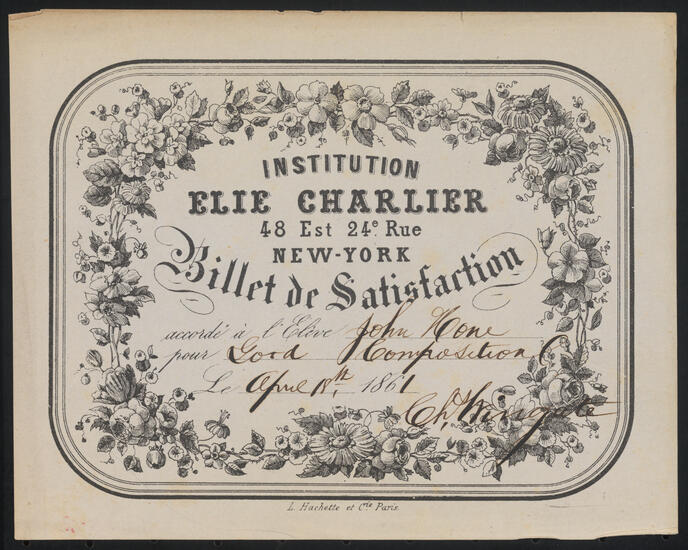 INSTITUTION
ELIE CHARLIER
48 Est 24e. Rue
NEW-YORK
Billet de Satisfaction
accordé à l'Elève John Hone
pour Good Composition
Le April 18th. 1861
Chs. Wingate
L. Hachette et Cie Paris.